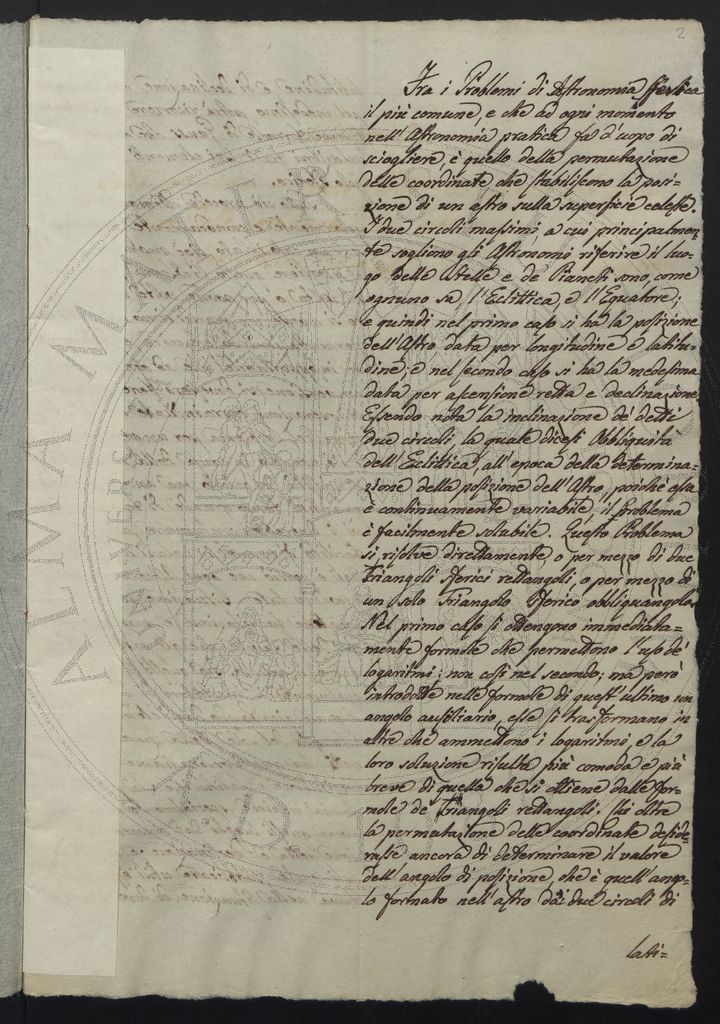 2
Fra i Problemi di Astronomia sferica
il più comune, e che ad ogni momento
nell'Astronomia pratica fa d'uopo di
sciogliere, è quello della permutazione
delle coordinate che stabiliscono la posi=
zione di un astro sulla superficie celeste.
I due circoli massimi a cui principalmen=
te sogliono gli Astronomi riferire il luo=
go delle Stelle e de' Pianeti sono, come
ognuno sa, l'Eclittica, e l'Equatore;
e quindi nel primo caso si ha la posizione
dell'Astro data per longitudine e latitu=
dine; e nel secondo caso si ha la medesima
data per ascensione retta e declinazione.
Essendo nota la inclinazione de' detti
due circoli, la quale dicesi Obbliquità
dell'Eclittica, all'epoca della determina=
zione della posizione dell'Astro, poichè essa
è continuamente variabile, il problema
è facilmente solubile. Questo Problema
si risolve direttamente, o per mezzo di due
Triangoli Sferici rettangoli, o per mezzo di
un solo Triangolo Sferico obbliquangolo.
Nel primo caso si ottengono immediata=
mente formole che permettono l'uso de'
logaritmi; non così nel secondo; ma però
introdotte nelle formole di quest'ultimo un
angolo ausiliario, esse si trasformano in
altre che ammettono i logaritmi, e la
loro soluzione risulta più comoda e più
breve di quella che si ottiene dalle for=
mole de' Triangoli rettangoli. Chi oltre
la permutazione delle coordinate deside=
rasse ancora di determinare il valore
dell'angolo di posizione, che è quell'ango=
lo formato nell'astro dai due circoli di
lati=
ALMA MATER